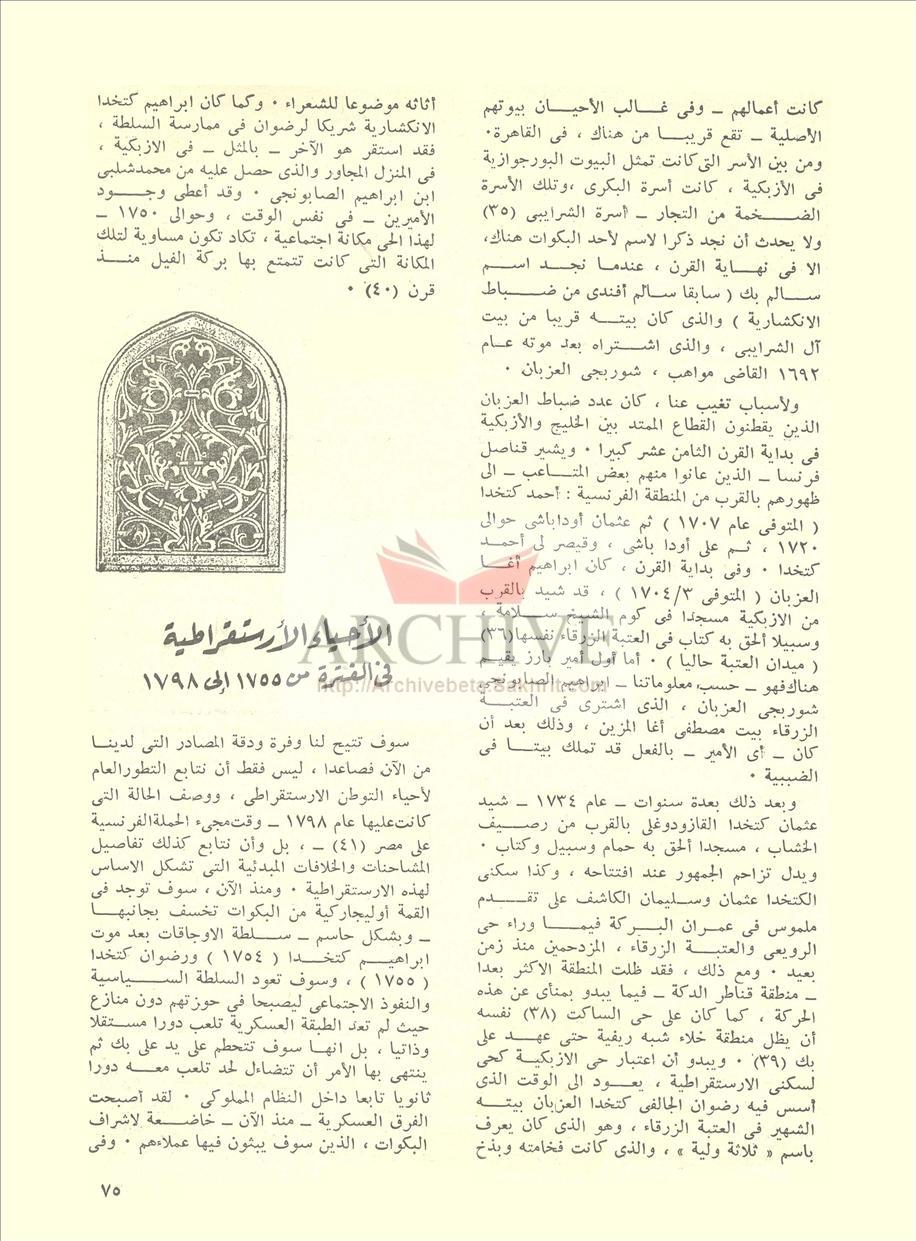 كانت أعمالهم ــ وفى غــالب الأحيــان بيوتهم
الأصلية ــ تقع قريبــا من هناك ، فى القاهرة٠
ومن بين الأسر التى كانت تمثل البيوت البورجوازية
فى الأزبكية ، كانت أسرة البكرى ،وتلك الأسرة
الضــخمة من التجار ــ أسرة الشرايبى (٣٥)
ولا يحدث أن نجد ذكرا لاسم لأحد البكوات هناك،
الا فى نهــاية القرن ، عندمـا نجــد اســم
ســالم بك ( سابقا سالم أفندى من ضــباط
الانكشارية ) والذى كان بيتــه قريبا من بيت
آل الشرايبى ، والذى اشــتراه بعد موته عـام
١٦٩٢ القاضى مواهب ، شوربجى العزبان ٠
ولأسباب تغيب عنا ، كان عدد ضباط العزبان
الذين يقطنون القطاع الممتد بين الخليج والأزبكية
فى بداية القرن الثامن عشر كبيرا ٠ ويشير قناصل
فرنسا ــ الذين عانوا منهم بعض المتــاعب ــ الى
ظهورهم بالقرب من المنطقة الفرنسية : أحمد كتخدا
( المتوفى عام ١٧٠٧ ) ثم عثمان أوداباشى حوالى
١٧٢٠ ، ثــم على أودا باشى ، وقيصر لى أحمــد
كتخدا ٠ وفى بداية القرن ، كان ابراهيم أغــا
العزبان ( المتوفى ١٧٠٤/٣ ) ، قد شيد بالقرب
من الازبكية مسجدا فى كوم الشيخ ســلامة ،
وسبيلا ألحق به كتاب فى العتبة الزرقاء نفسها(٣٦)
( ميدان العتبة حاليا ) ٠ أما أول أمير بارز يقيــم
هناك فهو ــ حسب معلوماتنا ــ ابراهيم الصابونجى
شوربجى العزبان ، الذى اشترى فى العتبــة
الزرقاء بيت مصطفى أغا المزين ، وذلك بعد أن
كان ــ أى الأمير ــ بالفعل قد تملك بيتــا فى
الضببية ٠
وبعد ذلك بعدة سنوات ــ عام ١٧٣٤ ــ شيد
عثمان كتخدا القازودوغلى بالقرب من رصــيف
الخشاب ، مسجدا ألحق به حمام وسبيل وكتاب ٠
ويدل تزاحم الجمهور عند افتتاحه ، وكذا سكنى
الكتخدا عثمان وســليمان الكاشف على تقــدم
ملموس فى عمران البــركة فيمــا وراء حى
الرويعى والعتبــة الزرقاء ، المزدحمين منذ زمن
بعيد ٠ ومع ذلك ، فقد ظلت المنطقة الاكثر بعدا
ــ منطقة قناطر الدكة ــ فيما يبدو بمنأى عن هذه
الحركة ، كما كان على حى الساكت (٣٨) نفسه
أن يظل منطقة خلاء شبه ريفية حتى عهــد على
بك (٣٩) ٠ ويبدو أن اعتبار حى الازبكيــة كحى
لسكنى الارستقراطية ، يعــود الى الوقت الذى
أسس فيه رضوان الجالفى كتخدا العزبان بيتــه
الشهير فى العتبة الزرقاء ، وهو الذى كان يعرف
باسم « ثلاثة ولية » ، والذى كانت فخامته وبذخ
أثاثه موضوعا للشعراء ٠ وكما كان ابراهيم كتخدا
الانكشارية شريكا لرضوان فى ممارسة السلطة ،
فقد استقر هو الآخر ــ بالمثل ــ فى الازبكية ،
فى المنزل المجاور والذى حصل عليه من محمدشلبى
ابن ابراهيم الصابونجى ٠ وقد أعطى وجــود
الأميرين ــ فى نفس الوقت ، وحوالى ١٧٥٠ ــ
لهذا الحى مكانة اجتماعية ، تكاد تكون مساوية لتلك
المكانة التى كانت تتمتع بها بركة الفيل منــذ
قرن (٤٠) ٠
الأحياء الأرستقراطية
فى الفترة من ١٧٥٥ إلى ١٧٩٨
سوف تتيح لنا وفرة ودقة المصادر التى لدينـا
من الآن فصاعدا ، ليس فقط أن نتابع التطورالعام
لأحياء التوطن الارستقراطى ، ووصف الحالة التى
كانت عليها عام ١٧٩٨ ــ وقت مجىء الحملةالفرنسية
على مصر (٤١) ــ ، بل وأن نتابع كذلك تفاصيل
المشاحنات والخلافات المبدئية التى تشكل الاساس
لهذه الارستقراطية ٠ ومنذ الآن ، سوف توجد فى
القمة أوليجاركية من البكوات تخسف بجانبهــا
ــ وبشكل حاسم ــ سـلطة الاوجاقات بعد موت
ابراهيــم كتخــدا ( ١٧٥٤ ) ورضوان كتخدا
( ١٧٥٥ ) ، وسوف تعود السلطة الســياسية
والنفوذ الاجتماعى ليصبحا فى حوزتهم دون منازع
حيث لم تعد الطبقة العسكرية تلعب دورا مســتقلا
وذاتيا ، بل انهــا سوف تتحطم على يد على بك ثم
ينتهى بها الأمر أن تتضاءل لحد تلعب معــه دورا
ثانويا تابعا داخل النظام المملوكى ٠ لقد أصبحت
الفرق العسكرية ــ منذ الآن ــ خاضــعة لاشراف
البكوات ، الذين سوف يبثون فيها عملاءهم ٠ وفى
٧٥
ARCHIVE
http://Archivebeta.Sakhrit.com